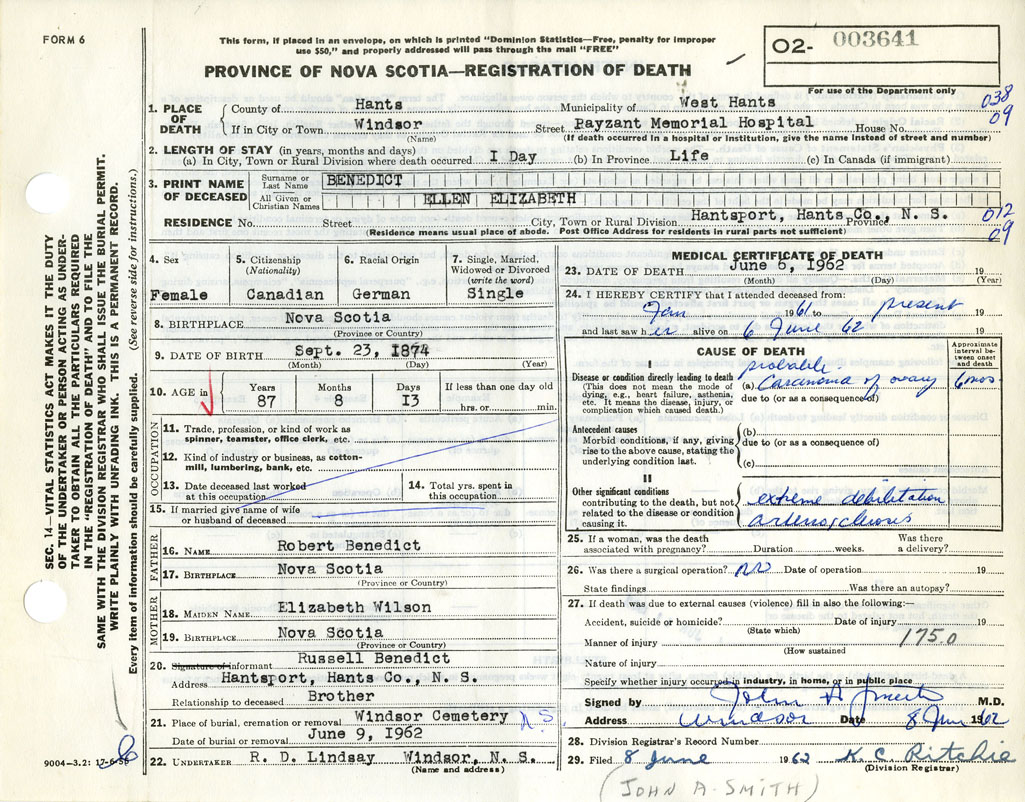 FORM 6
This form, if placed in an envelope, on which is printed "Dominion Statistics—Free, penalty for improper
use $50," and properly addressed will pass through the mail "FREE"
O2- 003641
PROVINCE OF NOVA SCOTIA—REGISTRATION OF DEATH
For use of the Department only
1. PLACE OF DEATH County of Hants Municipality of West Hants 038
If in City or Town Windsor Street Payzant Memorial Hospital House No. 09
(Name) (If death occurred in a hospital or institution, give the name instead of street and number)
2. LENGTH OF STAY (in years, months and days)
(a) In City, Town or Rural Division where death occurred I Day (b) In Province Life (c) In Canada (if immigrant)
3. PRINT NAME OF DECEASED Surname or Last Name BENEDICT
All Given or Christian Names ELLEN ELIZABETH
RESIDENCE No. Street City, Town or Rural Division Hantsport, Hants Co., N. S. Province 012
(Residence means usual place of abode. Post Office Address for residents in rural parts not sufficient) 09
4. Sex Female
5. Citizenship (Nationality) Canadian
6. Racial Origin German
7. Single, Married, Widowed or Divorced (write the word) Single
8. BIRTHPLACE Nova Scotia
(Province or Country)
9. DATE OF BIRTH Sept. 23, 1874
(Month) (Day) (Year)
10. AGE in Years 87 Months 8 Days I3 If less than one day old hrs. or min.
OCCUPATION
11. Trade, profession, or kind of work as
spinner, teamster, office clerk, etc.
12. Kind of industry or business, as cotton-
mill, lumbering, bank, etc.
13. Date deceased last worked
at this occupation
14. Total yrs. spent in
this occupation
15. If married give name of wife
or husband of deceased
FATHER
16. NAME Robert Benedict
17. BIRTHPLACE Nova Scotia
(Province or Country)
MOTHER
18. MAIDEN NAME Elizabeth Wilson
19. BIRTHPLACE Nova Scotia
(Province or Country)
20. Signature of informant Russell Benedict
Address Hantsport, Hants Co., N. S.
Relationship to deceased Brother
21. Place of burial, cremation or removal Windsor Cemetery N.S.
Date of burial or removal June 9, I962
22. UNDERTAKER R. D. Lindsay Windsor, N. S.
(Name and address)
MEDICAL CERTIFICATE OF DEATH
23. DATE OF DEATH June 6, I962 19
(Month) (Day) (Year)
24. I HEREBY CERTIFY that I attended deceased from:
Jan 1961 to present 19
and last saw her alive on 6 June 62 19
CAUSE OF DEATH
Approximate interval between onset and death
I
Disease or condition directly leading to death
(This does not mean the mode of
dying, e.g., heart failure, asthenia,
etc. It means the disease, injury, or
complication which caused death.)
probable
(a) Carcinoma of ovary 6 mos
due to (or as a consequence of)
Antecedent causes
Morbid conditions, if any, giving
rise to the above cause, stating the
underlying condition last.
(b)
due to (or as a consequence of)
(c)
II
Other significant conditions
contributing to the death, but not
related to the disease or condition
causing it.
extreme debilitation
arteriosclerosis
25. If a woman, was the death
associated with pregnancy? Duration weeks. Was there
a delivery?
26. Was there a surgical operation? no Date of operation 19
State findings Was there an autopsy?
27. If death was due to external causes (violence) fill in also the following:—
Accident, suicide or homicide? Date of injury 19
(State which)
Manner of injury 175.0
(How sustained
Nature of injury
Specify whether injury occurred in industry, in home, or in public place
Signed by John A Smith M.D.
Address Windsor Date 8 June 1962
28. Division Registrar's Record Number
29. Filed 8 June 1962 K. C. Ritchie
(Division Registrar)
(JOHN A. SMITH)
SEC. 14—VITAL STATISTICS ACT MAKES IT THE DUTY
OF THE UNDERTAKER OR PERSON ACTING AS UNDER-
TAKER TO OBTAIN ALL THE PARTICULARS REQUIRED
IN THE "REGISTRATION OF DEATH" AND TO FILE THE
SAME WITH THE DIVISION REGISTRAR WHO SHALL ISSUE THE BURIAL PERMIT.
WRITE PLAINLY WITH UNFADING INK. THIS IS A PERMANENT RECORD.
Every item of information should be carefully supplied. (See reverse side for instructions.)
9004—3.2: 17-6-58